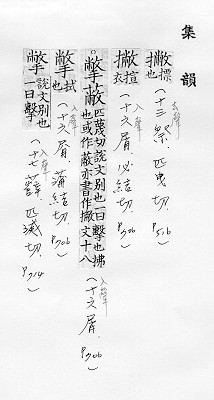 集韻
撇 摽也 (十三祭. 匹曳切. P516) 去聲
撇 揎衣 (十六屑 必結切. P706) 入聲
。撆蔽 匹蔑切說文別也一曰擊也拂
也或作蔽亦書作撇文十八 (十六屑. P706) 入聲
撆 拭也 (十六屑 蒲結切. P706) 入聲
撆 說文別也一曰擊 (十七薛. 匹滅切. P714) 入聲